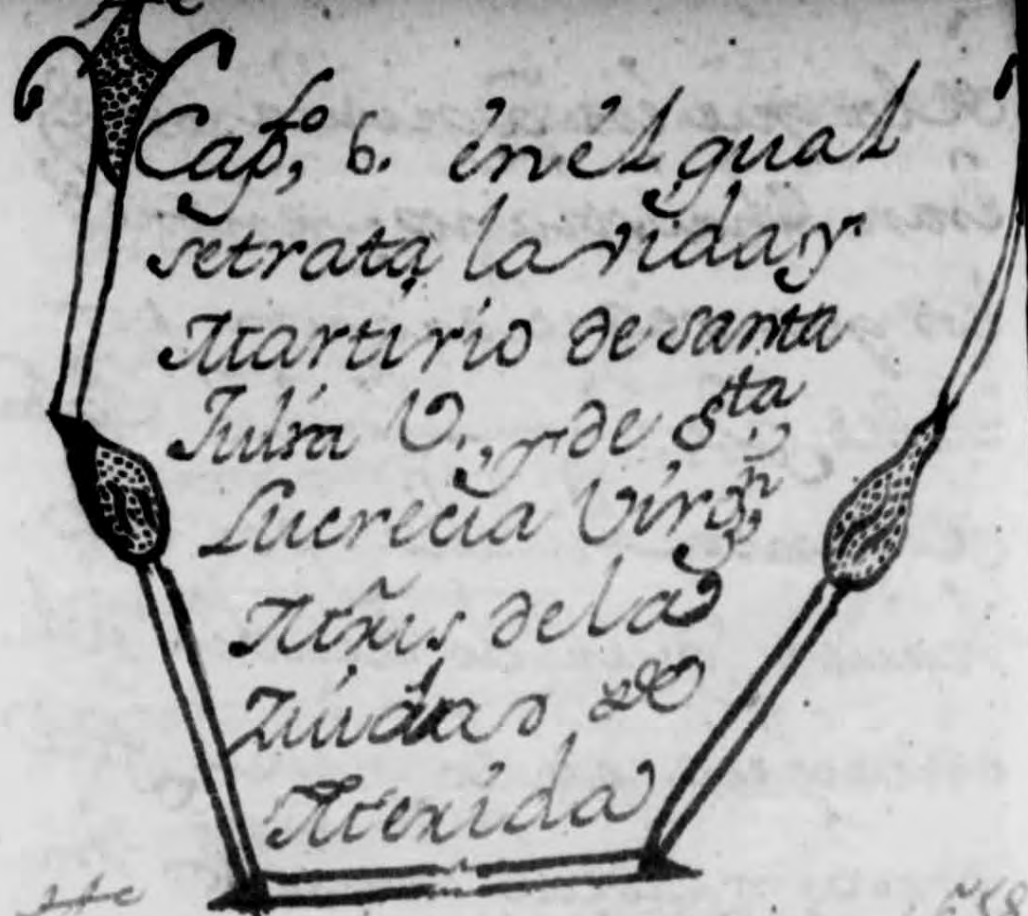 Capº, 6. en el qual
se trata, la vida y
Martirio de santa
Julia V., y de Sta
Lucrecia Virgn,
Mtres de la
Ziudad de
Merida